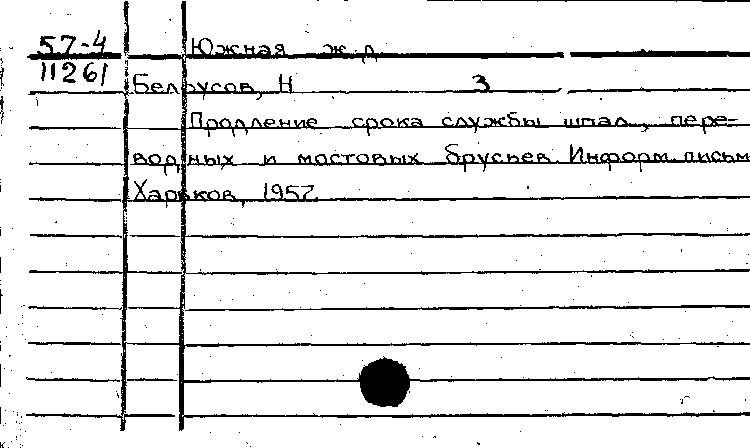 57-4 Южная ж.д.
11261 Белоусов, Н 3
Продление срока службы шпал, пере-
водных и мостовых брусьев. Информ. письм
Харьков, 1957.